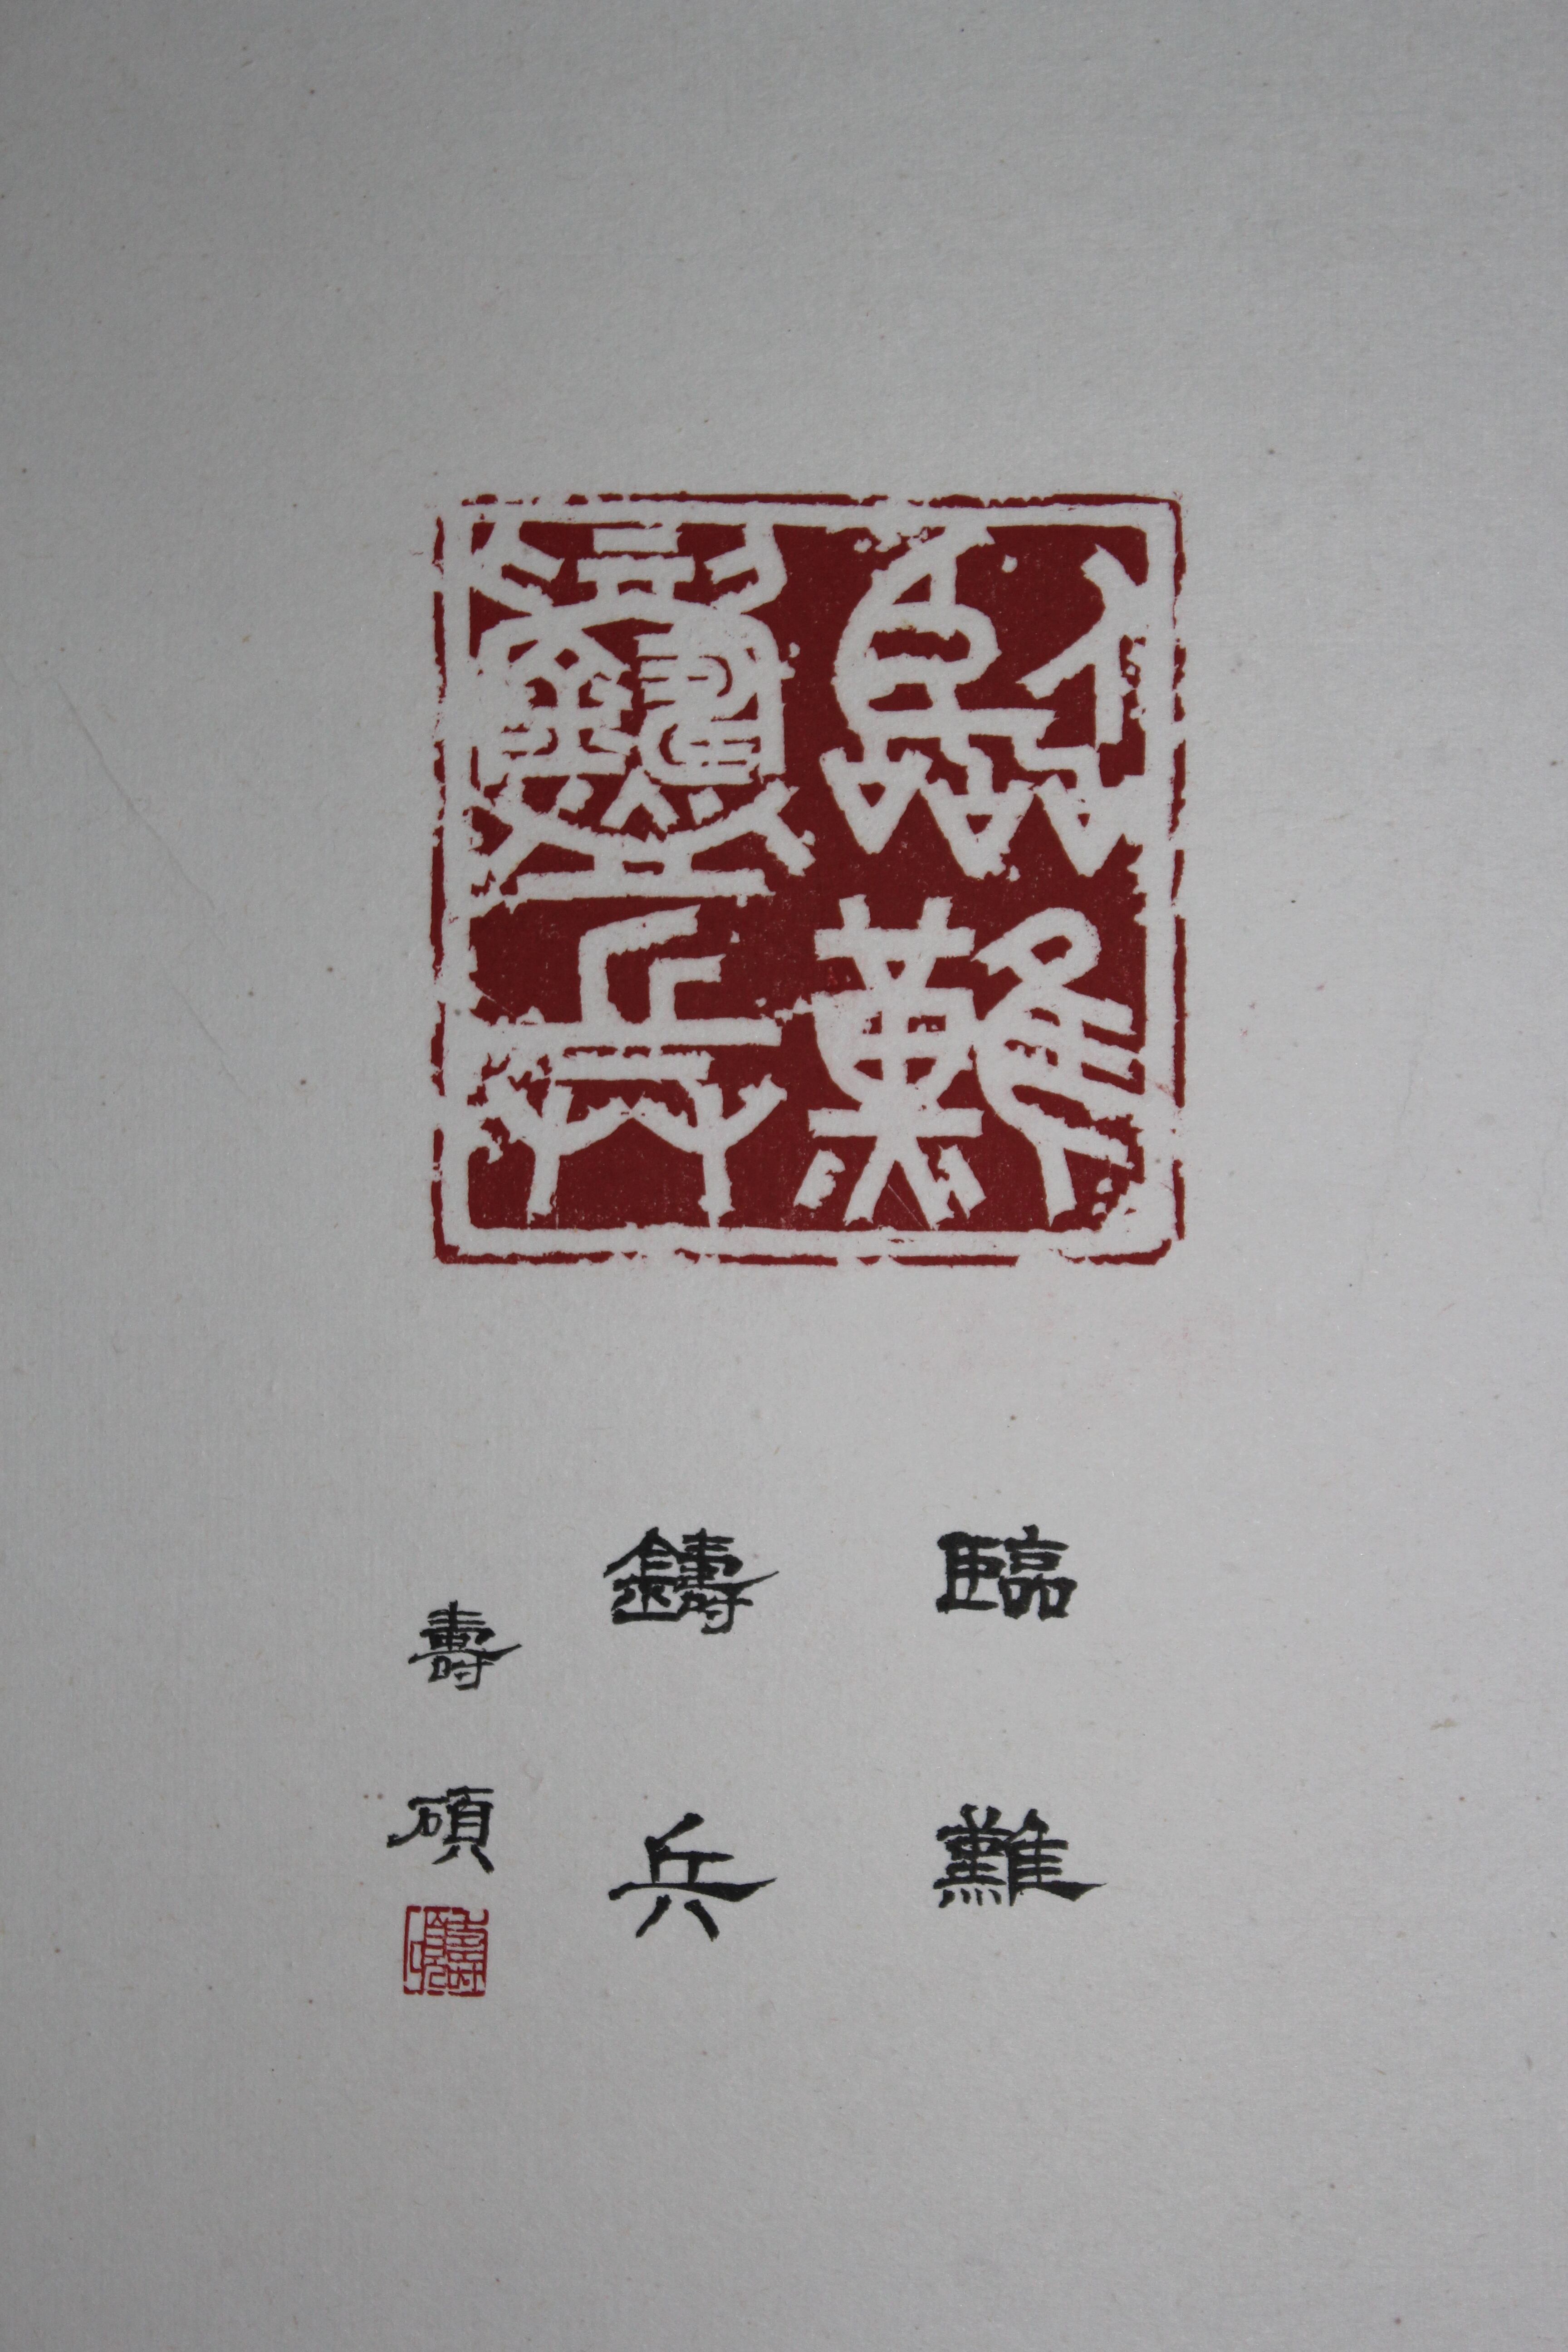 臨難
鑄兵
臨難
鑄兵
壽碩